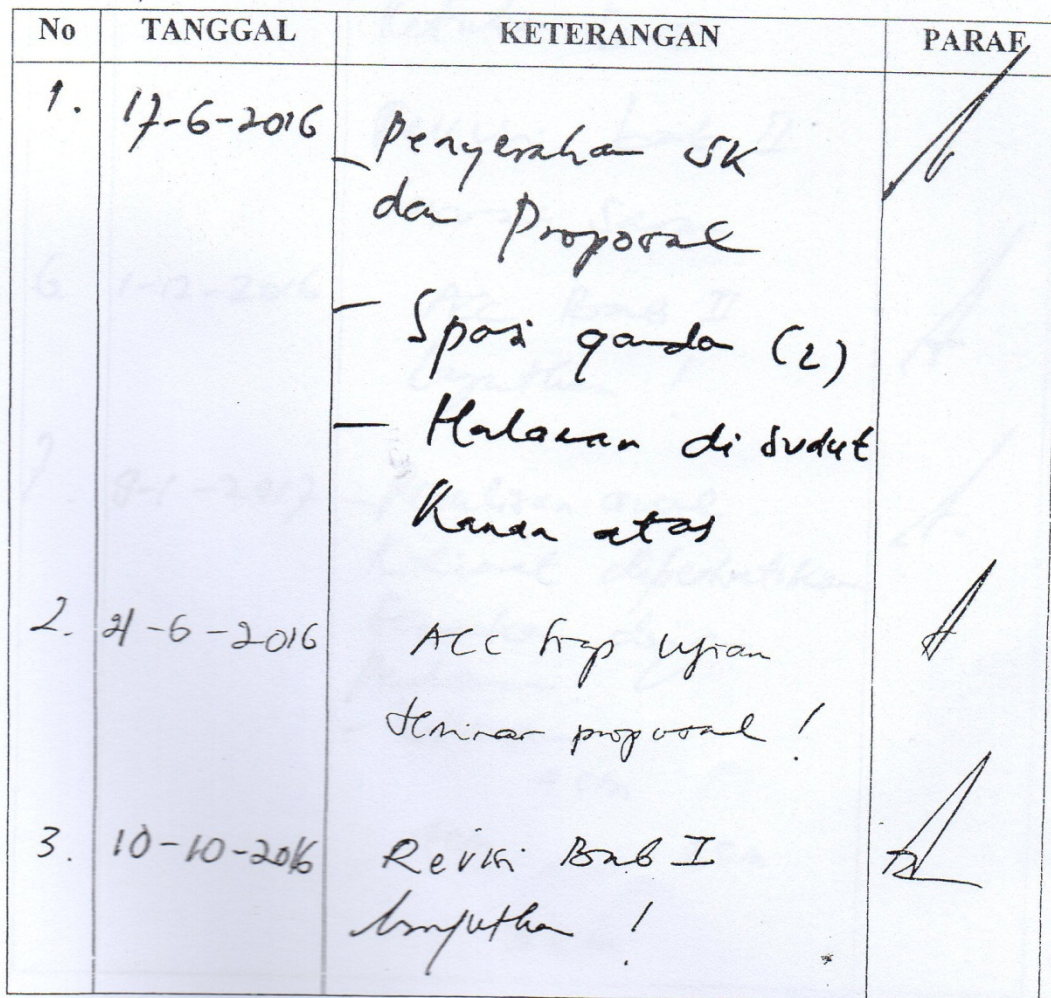 No TANGGAL KETERANGAN PARAF
1. 17-6-2016 - Penyerahan SK
dan Proposal
- Spasi ganda (2)
- Halaman di sudut
Kanan atas
2. 21-6-2016 ACC Siap Ujian
Seminar proposal !
3. 10-10-2016 Revisi Bab I
lanjutkan !
6 1-12-2016 ACC Bab II
lanjutkan !
7. 8-1-2017 -